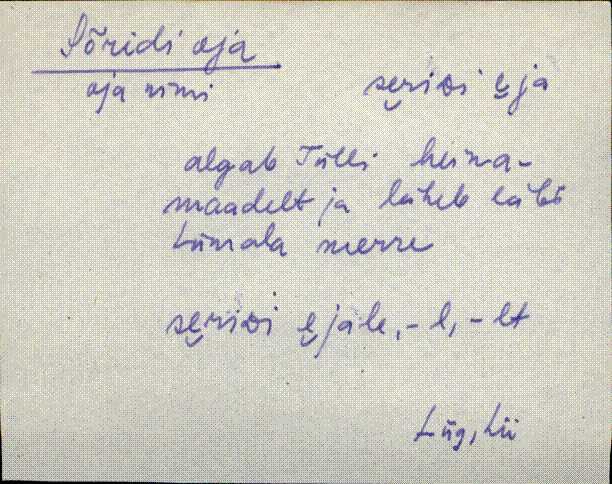 Sõridi oja
oja nimi
se̮riDi e̮ja
algab Tülli heina-
maadelt ja läheb läbi
Liimala merre
se̮riDi e̮jale, -l, -lt
Lüg, Lii